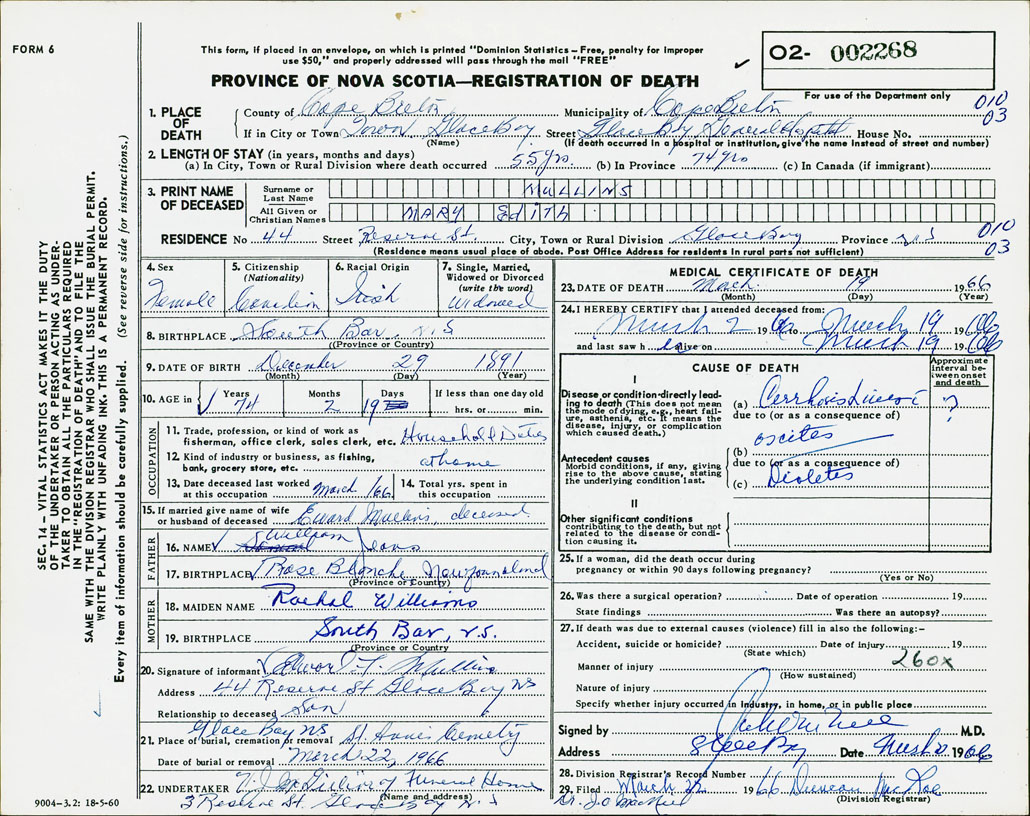 FORM 6
This form, if placed in an envelope, on which is printed "Dominion Statistics – Free, penalty for improper
use $50," and properly addressed will pass through the mail "FREE"
PROVINCE OF NOVA SCOTIA—REGISTRATION OF DEATH
O2- 002268
For use of the Department only
010
03
1. PLACE OF DEATH
County of Cape Breton Municipality of Cape Breton
If in City or Town Town Glace Bay Street Glace Bay General Hospital House No.
(Name) (If death occurred in a hospital or institution, give the name instead of street and number)
2. LENGTH OF STAY (in years, months and days)
(a) In City, Town or Rural Division where death occurred 55 yrs. (b) In Province 74 yrs (c) In Canada (if immigrant)
3. PRINT NAME OF DECEASED
Surname or Last Name MULLINS
All Given or Christian Names MARY Edith
RESIDENCE No 44 Street Reserve St. City, Town or Rural Division Glace Bay Province N S
010
03
(Residence means usual place of abode. Post Office Address for residents in rural parts not sufficient)
4. Sex Female
5. Citizenship (Nationality) Canadian
6. Racial Origin Irish
7. Single, Married, Widowed or Divorced (write the word) Widowed
8. BIRTHPLACE South Bar, N.S
(Province or Country)
9. DATE OF BIRTH December 29 1891
(Month) (Day) (Year)
10. AGE in Years 74 Months 2 19 If less than one day old hrs. or min.
OCCUPATION
11. Trade, profession, or kind of work as fisherman, office clerk, sales clerk, etc. Household Duties
12. Kind of industry or business, as fishing, bank, grocery store, etc. at home
13. Date deceased last worked at this occupation March /66
14. Total yrs. spent in this occupation
15. If married give name of wife or husband of deceased Edward Mullins, deceased.
FATHER
16. NAME William
17. BIRTHPLACE Rose Blanche, Newfoundland
(Province or Country)
MOTHER
18. MAIDEN NAME Rachel Williams
19. BIRTHPLACE South Bar, N.S.
(Province or Country)
20. Signature of informant Mullins
Address 44 Reserve St Glace Bay NS
Relationship to deceased Son
Glace Bay NS
21. Place of burial, cremation or removal Cemetery
Date of burial or removal March 22, 1966
22. UNDERTAKER Funeral Home
(Name and address)
3 Reserve St. Glace Bay N.S
9004-3.2: 18-5-60
MEDICAL CERTIFICATE OF DEATH
23. DATE OF DEATH March 19 1966
(Month) (Day) (Year)
24. I HEREBY CERTIFY that I attended deceased from:
March 2 1966 to March 19 1966
and last saw h er alive on March 19 1966
CAUSE OF DEATH
Approximate interval between onset and death
I
Disease or condition directly leading to death (This does not mean the mode of dying, e.g., heart failure, asthenia, etc. It means the disease, injury, or complication which caused death.)
(a) Cirrhosis Liver ?
due to (or as a consequence of)
(b) ascites
Antecedent causes
Morbid conditions, if any, giving rise to the above cause, stating the underlying condition last.
due to (or as a consequence of)
(c) Diabetes
II
Other significant conditions
contributing to the death, but not related to the disease or condition causing it.
25. If a woman, did the death occur during
pregnancy or within 90 days following pregnancy?
(Yes or No)
26. Was there a surgical operation? Date of operation 19
State findings Was there an autopsy?
27. If death was due to external causes (violence) fill in also the following:-
Accident, suicide or homicide? Date of injury 19
(State which) 260x
Manner of injury
(How sustained)
Nature of injury
Specify whether injury occurred in industry, in home, or in public place
Signed by M.D.
Address Glace Bay Date March 1966
28. Division Registrar's Record Number
29. Filed March 22 1966 Duncan MacRae
(Division Registrar)
Dr. J.O MacNeil
SEC. 14 – VITAL STATISTICS ACT MAKES IT THE DUTY
OF THE UNDERTAKER OR PERSON ACTING AS UNDER-
TAKER TO OBTAIN ALL THE PARTICULARS REQUIRED
IN THE "REGISTRATION OF DEATH" AND TO FILE THE
SAME WITH THE DIVISION REGISTRAR WHO SHALL ISSUE THE BURIAL PERMIT.
WRITE PLAINLY WITH UNFADING INK. THIS IS A PERMANENT RECORD.
Every item of information should be carefully supplied. (See reverse side for instructions.)